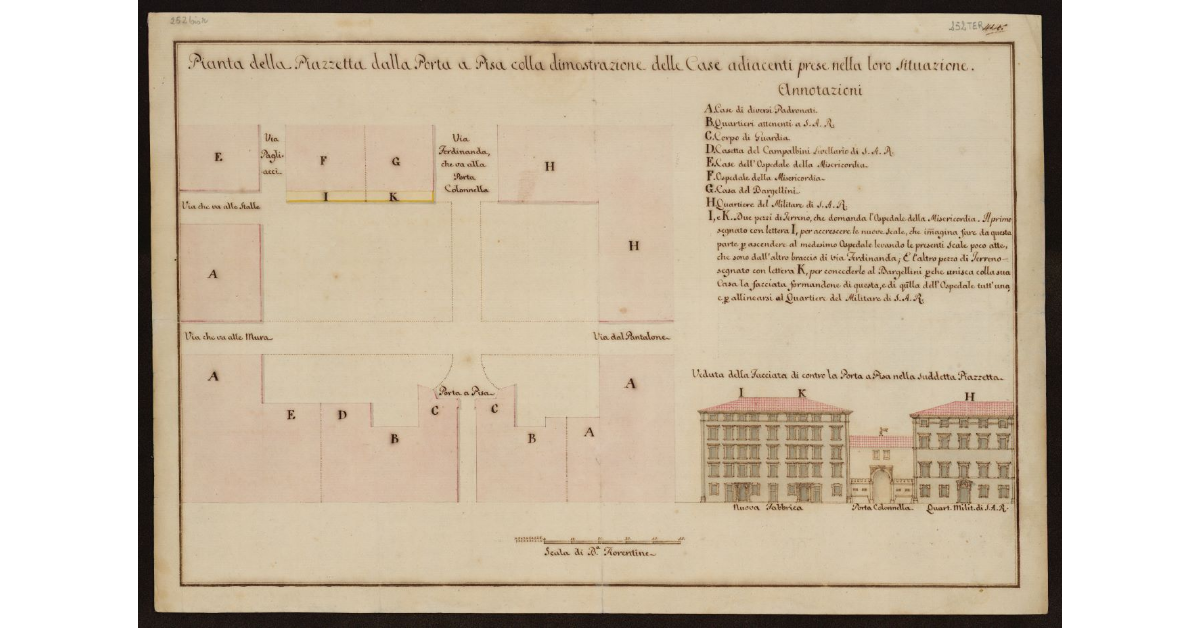 252TER
Pianta della Piazzetta dalla Porta a Pisa colla dimostrazione delle Case adiacenti prese nella loro Situazione.
Annotazioni
A. Case di diversi Padronati.
B. Quartieri attenenti a S.A.R.
C. Corpo di Guardia.
D. Casetta del Campalbini livellario di S.A.R.
E. Case dell'Ospedale della Misericordia.
F. Ospedale della Misericordia.
G. Casa del Bargellini.
H. Quartiere del Militare di S.A.R.
I, e K. Due pezzi di Terreno, che domanda l'Ospedale della Misericordia. Il primo
segnato con lettera I, per accrescere le nuove scale, che im̃agina fare da questa
parte, p ascendere al medesimo Ospedale levando le presenti Scale poco atte,
che sono dall'altro braccio di via Ferdinanda; E l'altro pezzo di Terreno
segnato con lettera K, per concederlo al Bargellini pche unisca colla sua
Casa la facciata formandone di questa, e di qũlla dell'Ospedale tutt'una,
e p allinearsi al Quartiere del Militare di S.A.R.
E
Via
Pagli-
acci.
F
G
Via
Ferdinanda,
che va alla
Porta
Colonnella
H
I
K
Via che va alle Stalle
A
H
Via che va alle Mura
Via dal Pantalone
A
E
D
B
C
Porta a Pisa
C
B
A
A
Veduta della Facciata di contro la Porta a Pisa nella suddetta Piazzetta
I
K
H
Nuova Fabbrica
Porta Colonnella
Quart. Milit. di S.A.R.
Scala di B.a Fiorentine